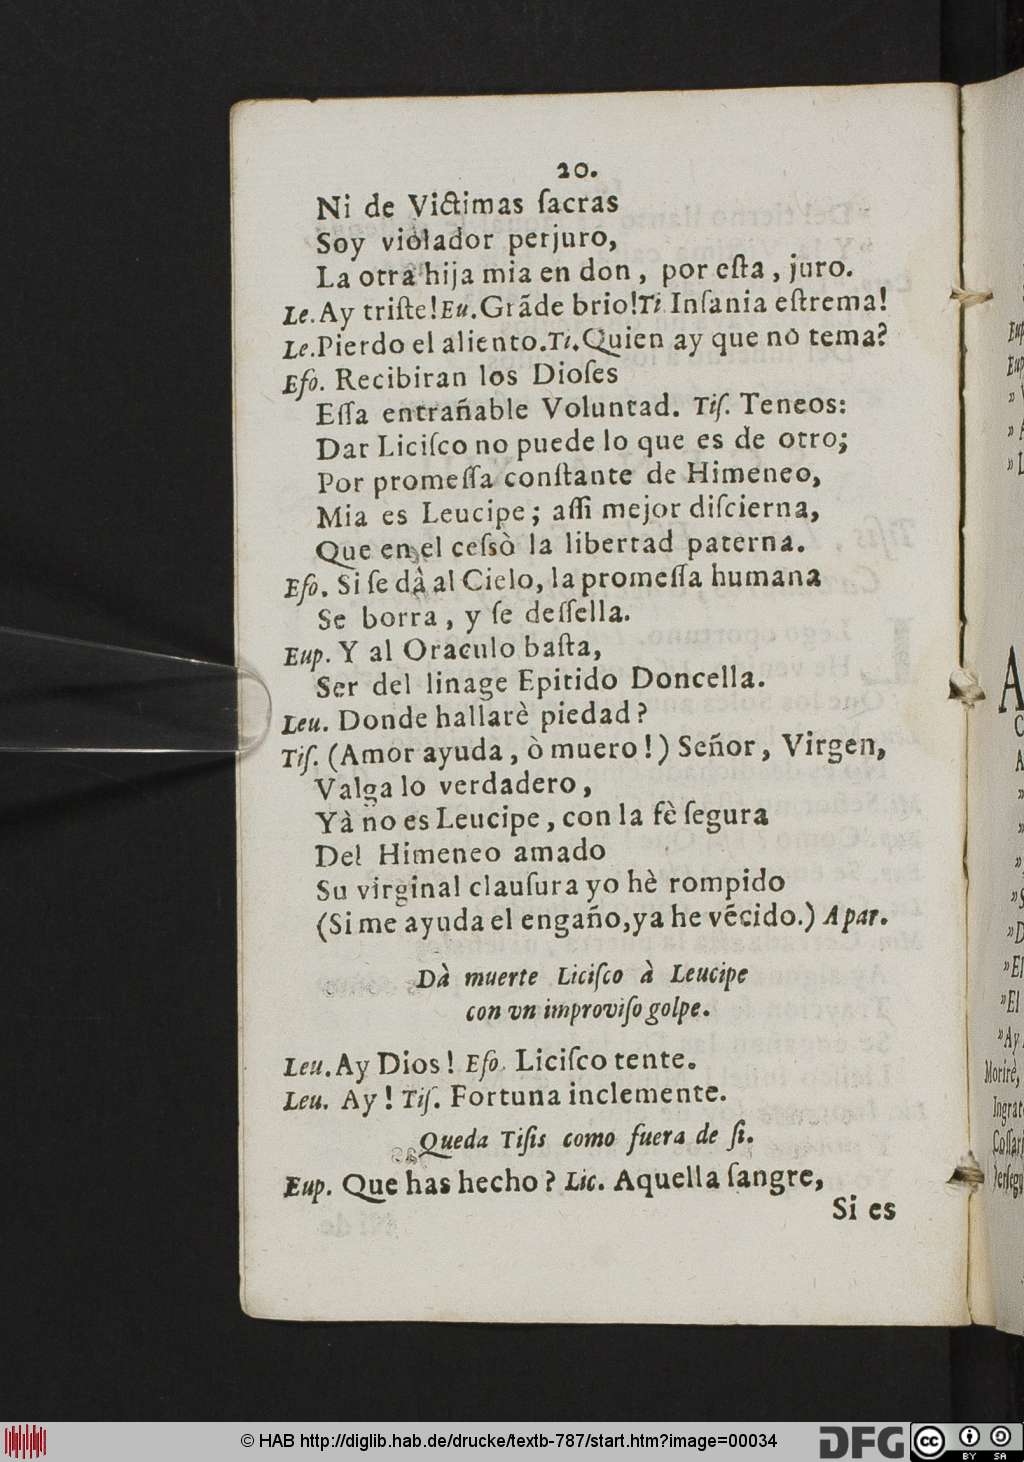 20.
Ni de Victimas ſacras
Soy violador perjuro,
La otra hija mia en don, por eſta, juro.
Le. Ay triſte! Eu. Grãde brio! Ti Inſania eſtrema!
Le. Pierdo el aliento. Ti. Quien ay que no tema?
Eſo. Recibiran los Dioſes
Eſſa entrañable Voluntad. Tiſ. Teneos:
Dar Liciſco no puede lo que es de otro;
Por promeſſa conſtante de Himeneo,
Mia es Leucipe; aſſi mejor diſcierna,
Que en el ceſsò la libertad paterna.
Eſo. Si ſe dà al Cielo, la promeſſa humana
Se borra, y ſe deſſella.
Eup. Y al Oraculo baſta,
Ser del linage Epitido Doncella.
Leu. Donde hallarè piedad?
Tiſ. (Amor ayuda, ò muero!) Señor, Virgen,
Valga lo verdadero,
Yà no es Leucipe, con la fè ſegura
Del Himeneo amado
Su virginal clauſura yo hè rompido
(Si me ayuda el engaño, ya he vẽcido.) Apar.
Dà muerte Liciſco à Leucipe
con vn improviſo golpe.
Leu. Ay Dios! Eſo. Liciſco tente.
Leu. Ay! Tiſ. Fortuna inclemente.
Queda Tiſis como fuera de ſi.
Eup. Que has hecho? Lic. Aquella ſangre,
Si es
Eup
Eup
A
C
A
Morirè,
Ingrat
Coſſari
© HAB http://diglib.hab.de/drucke/textb-787/start.htm?image=00034
DFG
cc BY SA